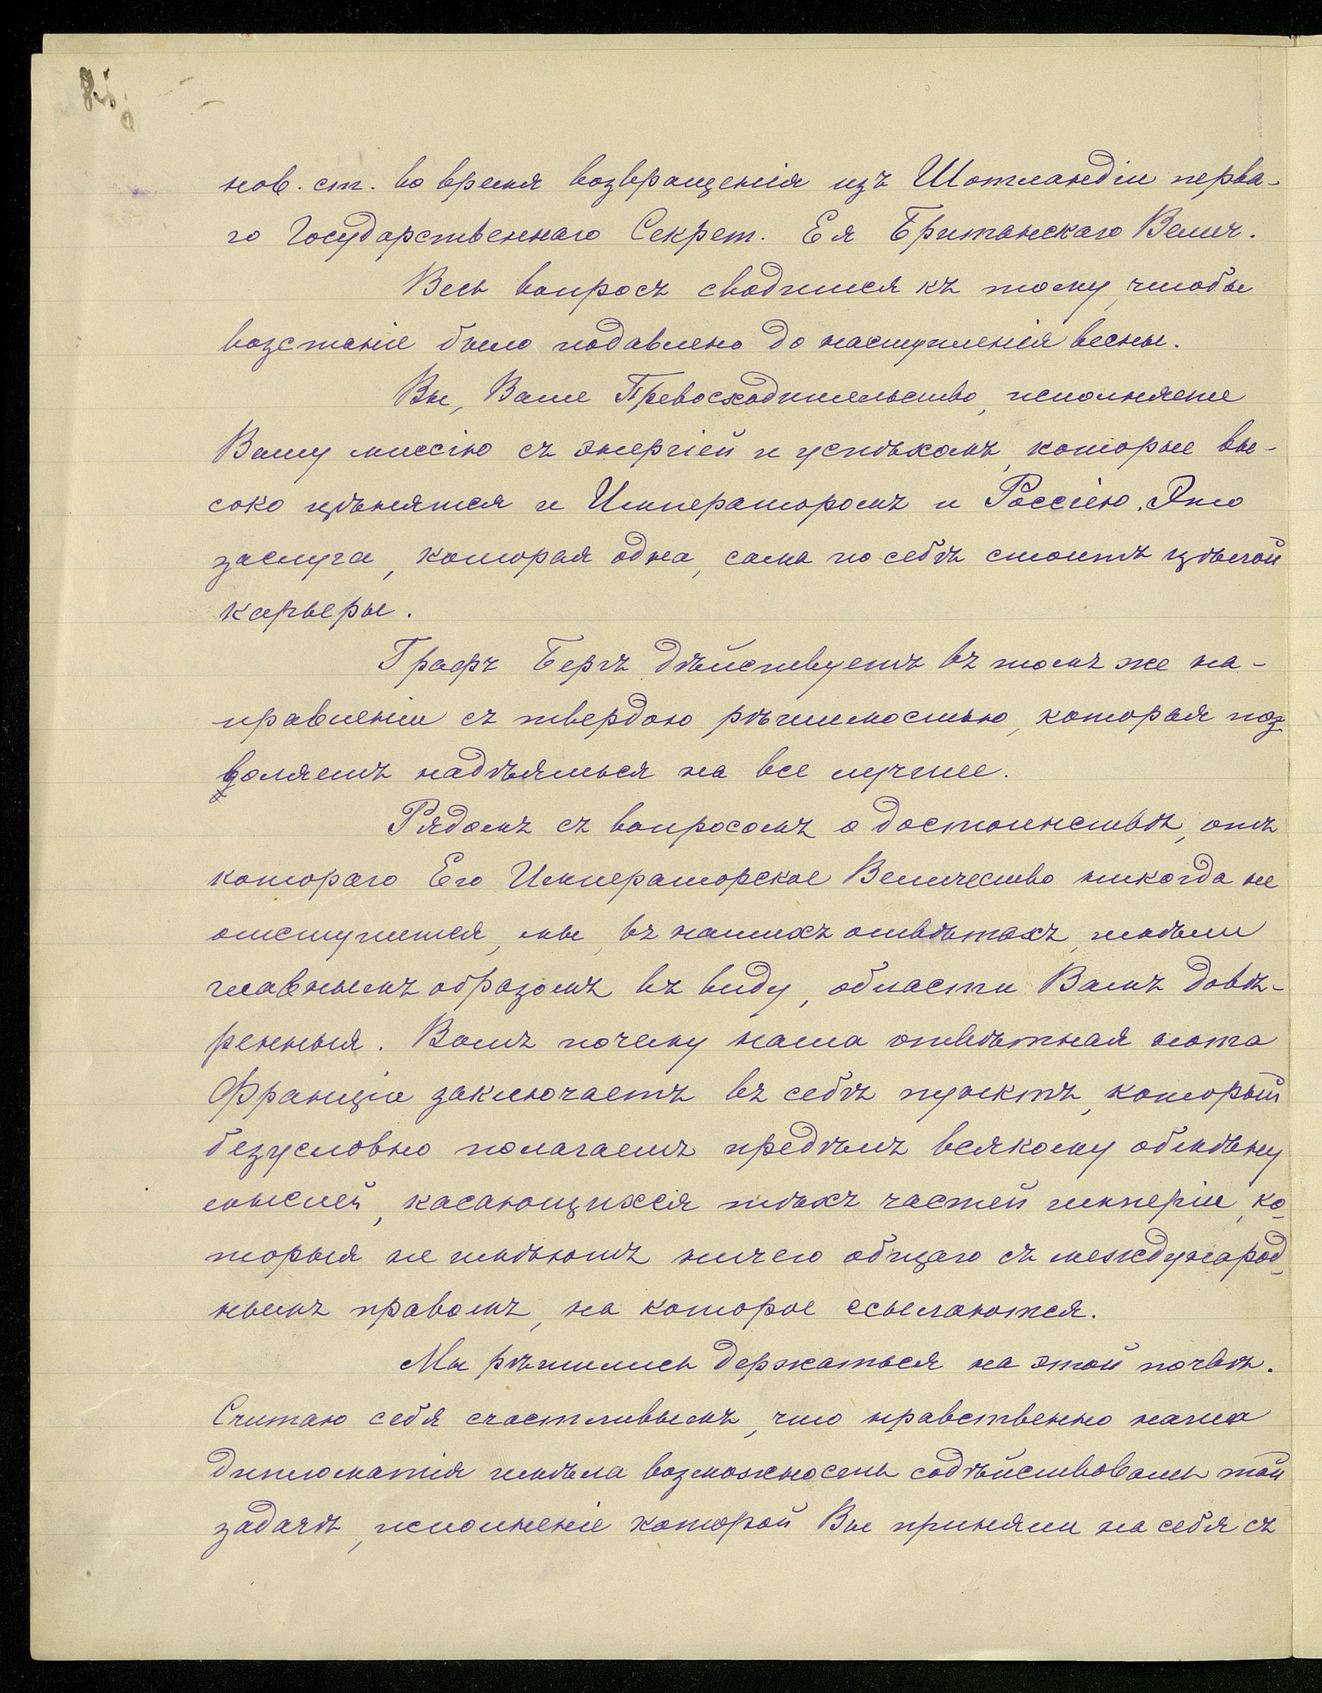 нов. ст. во время возвращенія изъ Шотландіи перва-
го Государственнаго Секрет. Ея Британскаго Велич.
Весь вопросъ сводится къ тому, чтобы
возстаніе было подавлено до наступленія весны.
Вы, Ваше Превосходительство, исполняете
Вашу миссію съ энергіей и успѣхомъ, которые вы-
соко цѣнятся и Императоромъ и Россіею. Это
заслуга, которая одна, сама по себѣ стоитъ цѣлой
карьеры.
Графъ Бергъ дѣйствуетъ въ томъ же на-
правленіи съ твердою рѣшимостью, которая поз-
воляетъ надѣяться на все лучшее.
Рядомъ съ вопросомъ о достоинствѣ, отъ
котораго Его Императорское Величество никогда не
отступится, мы, въ нашихъ отвѣтахъ, имѣли
главнымъ образомъ въ виду, области Вамъ довѣ-
ренныя. Вотъ почему наша отвѣтная нота
Франціи заключаетъ въ себѣ пунктъ, который
безусловно полагаетъ предѣлъ всякому обмѣну
мыслей, касающихся тѣхъ частей имперіи, ко-
торыя не имѣютъ ничего общаго съ международ-
нымъ правомъ, на которое ссылаются.
Мы рѣшились держаться на этой почвѣ.
Считаю себя счастливымъ, что нравственно наша
дипломатія имѣла возможность содѣйствовать той
задачѣ, исполненіе которой Вы приняли на себя съ